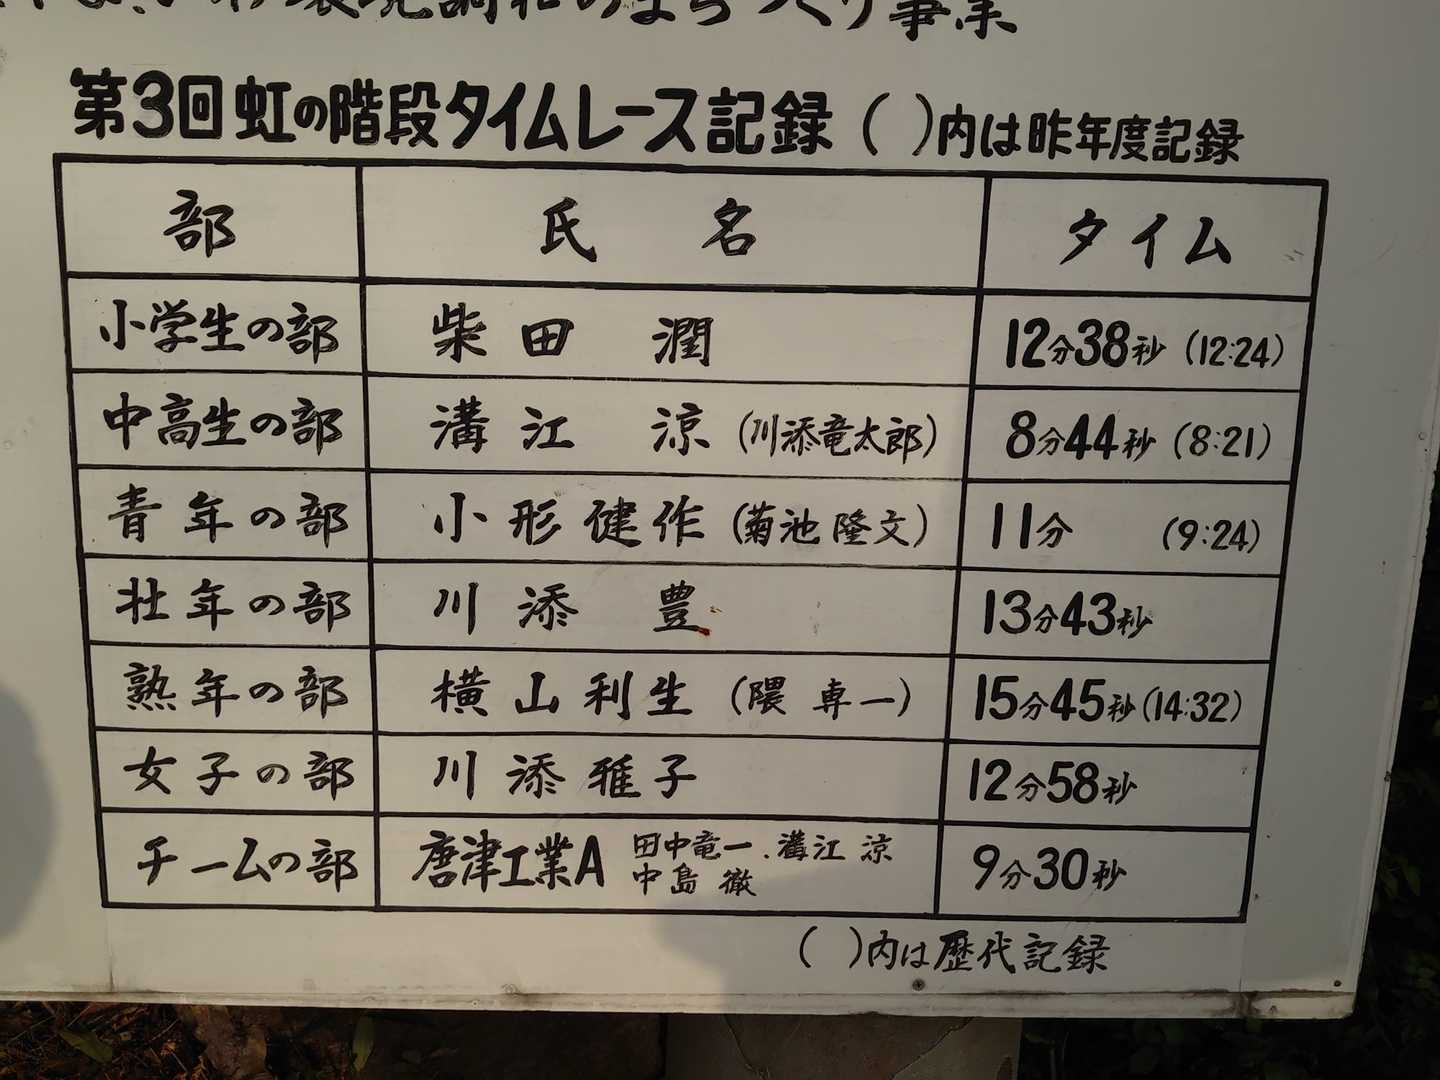 環境調和のまちづくり事業
第3回虹の階段タイムレース記録 ( )内は昨年度記録
部 氏 名 タイム
小学生の部 柴田 潤 12分38秒 (12:24)
中高生の部 溝江 涼 (川添竜太郎) 8分44秒 (8:21)
青年の部 小形健作 (菊池隆文) 11分 (9:24)
壮年の部 川添 豊 13分43秒
熟年の部 横山利生 (隈 専一) 15分45秒 (14:32)
女子の部 川添雅子 12分58秒
チームの部 唐津工業A 田中竜一.溝江 涼 9分30秒
中島 徹
( )内は歴代記録